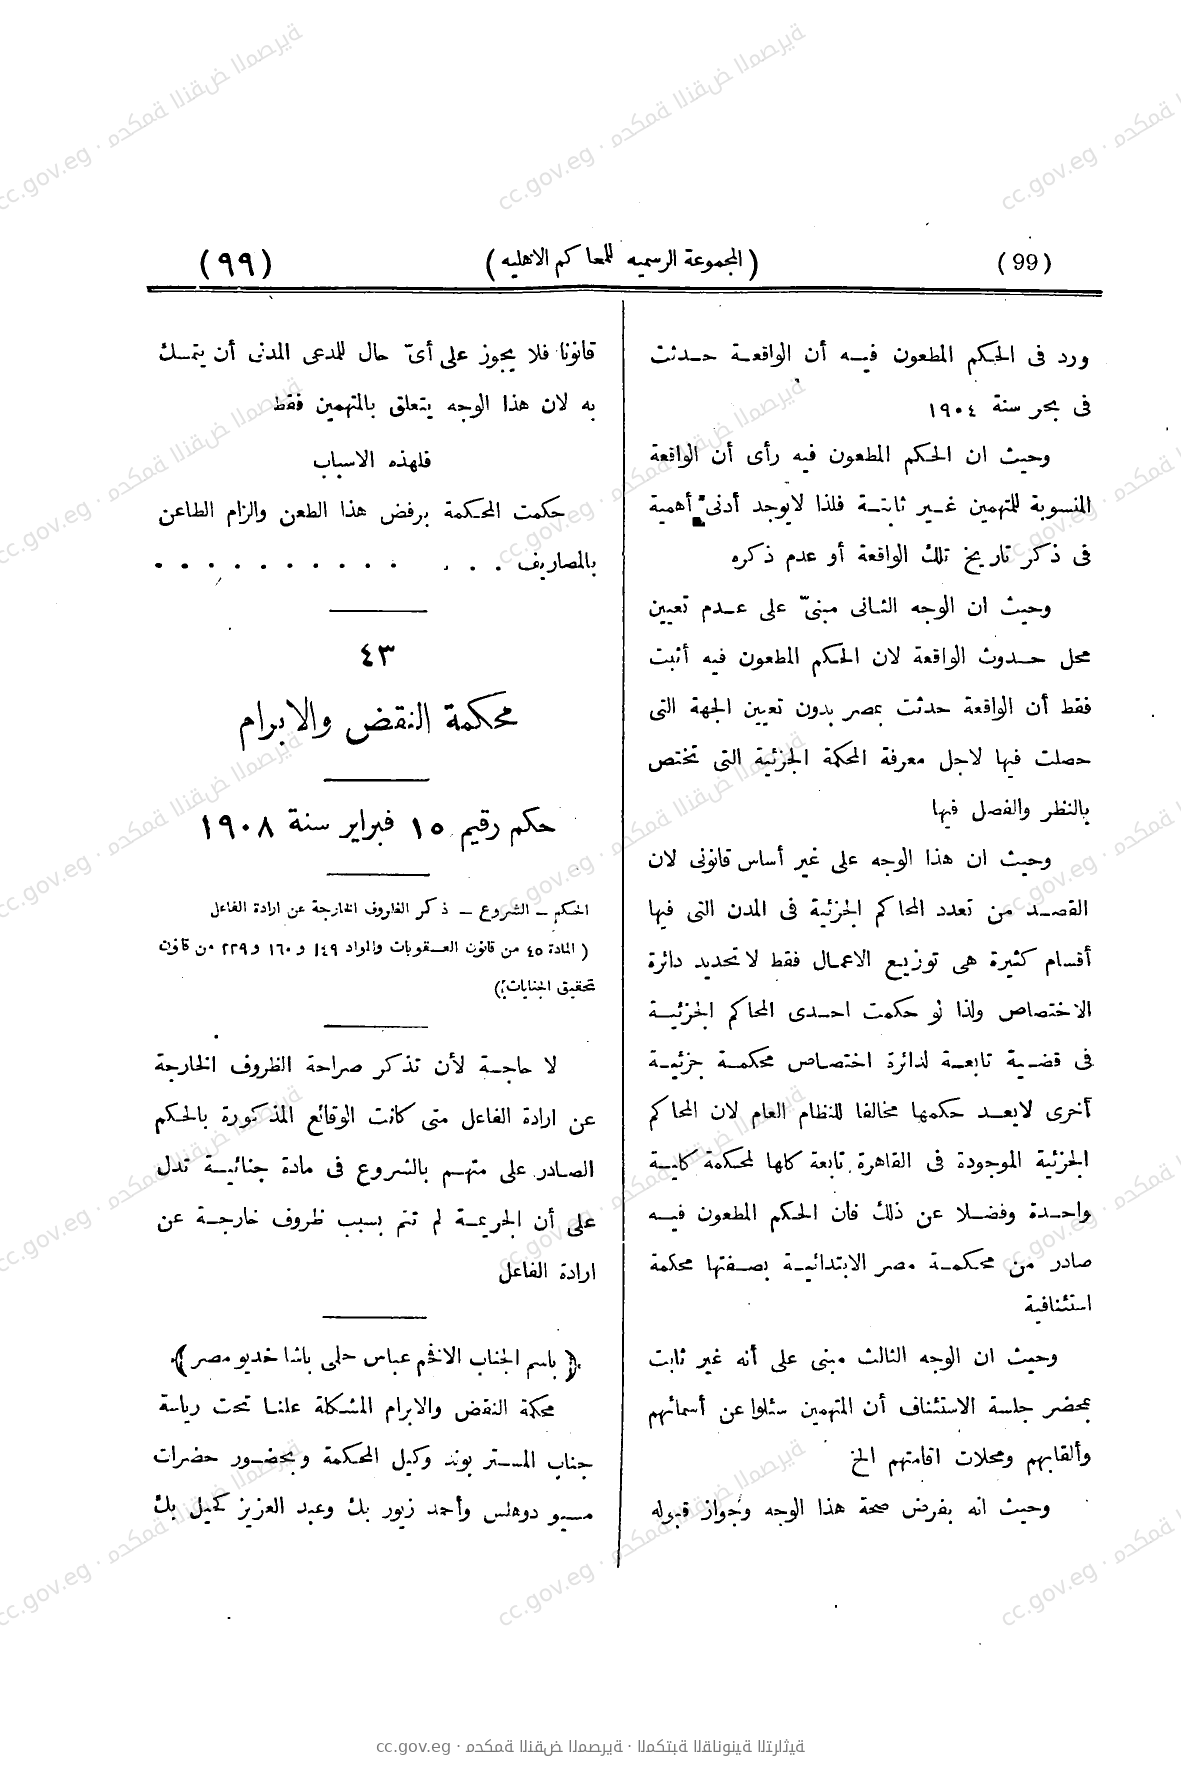 (99) (المجموعة الرسميه للمحاكم الاهليه) (٩٩)
ورد فى الحكم المطعون فيـه أن الواقعـة حـدثت
فى بحر سنة ١٩٠٤
وحيث ان الحكم المطعون فيه رأى أن الواقعة
المنسوبة للمتهمين غـير ثابتـة فلذا لايوجد أدنى أهمية
فى ذكر تاريخ تلك الواقعة أو عدم ذكره
وحيث ان الوجه الثانى مبنىّ على عـدم تعيين
محل حـدوث الواقعة لان الحكم المطعون فيه أثبت
فقط أن الواقعة حدثت بمصر بدون تعيين الجهة التى
حصلت فيها لاجل معرفة المحكمة الجزئية التى تختص
بالنظر والفصل فيها
وحيث ان هذا الوجه على غير أساس قانونى لان
القصـد من تعدد المحاكم الجزئية فى المدن التى فيها
أقسام كثيرة هى توزيـع الاعمـال فقط لا تحديد دائرة
الاختصاص ولذا لو حكمت احـدى المحاكم الجزئيـة
فى قضـية تابعـة لدائرة اختصـاص محكمـة جزئيـة
أخرى لايعـد حكمها مخالفا للنظام العام لان المحاكم
الجزئية الموجودة فى القاهرة تابعة كلها لمحكمة كليـة
واحـدة وفضـلا عن ذلك فان الحكم المطعون فيـه
صادر من محكمـة مصر الابتدائيـة بصـفتها محكمة
استئنافية
وحيث ان الوجه الثالث مبنى على أنه غير ثابت
بمحضر جلسة الاستئناف أن المتهمين سئلوا عن أسمائهم
وألقابهم ومحلات اقامتهم الخ
وحيث انه بفرض صحة هذا الوجه وجواز قبوله
قانونا فلا يجوز على أىّ حال للمدعى المدنى أن يتمسك
به لان هذا الوجه يتعلق بالمتهمين فقط
فلهذه الاسباب
حكمت المحكمة برفض هذا الطعن والزام الطاعن
بالمصاريف . . . . . . . . . . . . .
٤٣
محكمة النقض والابرام
حكم رقيم ١٥ فبراير سنة ١٩٠٨
الحكم ــ الشروع ــ ذكر الظروف الخارجة عن ارادة الفاعل
(المادة ٤٥ من قانون العـقوبات والمواد ١٤٩ و ١٦٠ و ٢٢٩ من قانون
تحقيق الجنايات)
لا حاجـة لأن تذكر صراحة الظروف الخارجة
عن ارادة الفاعل متى كانت الوقائع المذكورة بالحكم
الصـادر على متهـم بالشروع فى مادة جنائيـة تدل
على أن الجريمـة لم تتم بسبب ظروف خارجـة عن
ارادة الفاعل
(باسم الجناب الافخم عباس حلمى باشا خديو مصر)
محكمة النقض والابرام المشكلة علنـا تحت رياسة
جناب المسـتر بوند وكيل المحكمة وبحضـور حضرات
مسيو دوهلس وأحمد زيور بك وعبد العزيز كحيل بك
cc.gov.eg · محكمة النقض المصرية · المكتبة القانونية التراثية